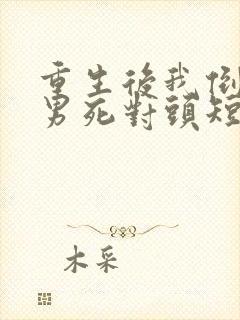 重生後我倒
男死對頭短
木采